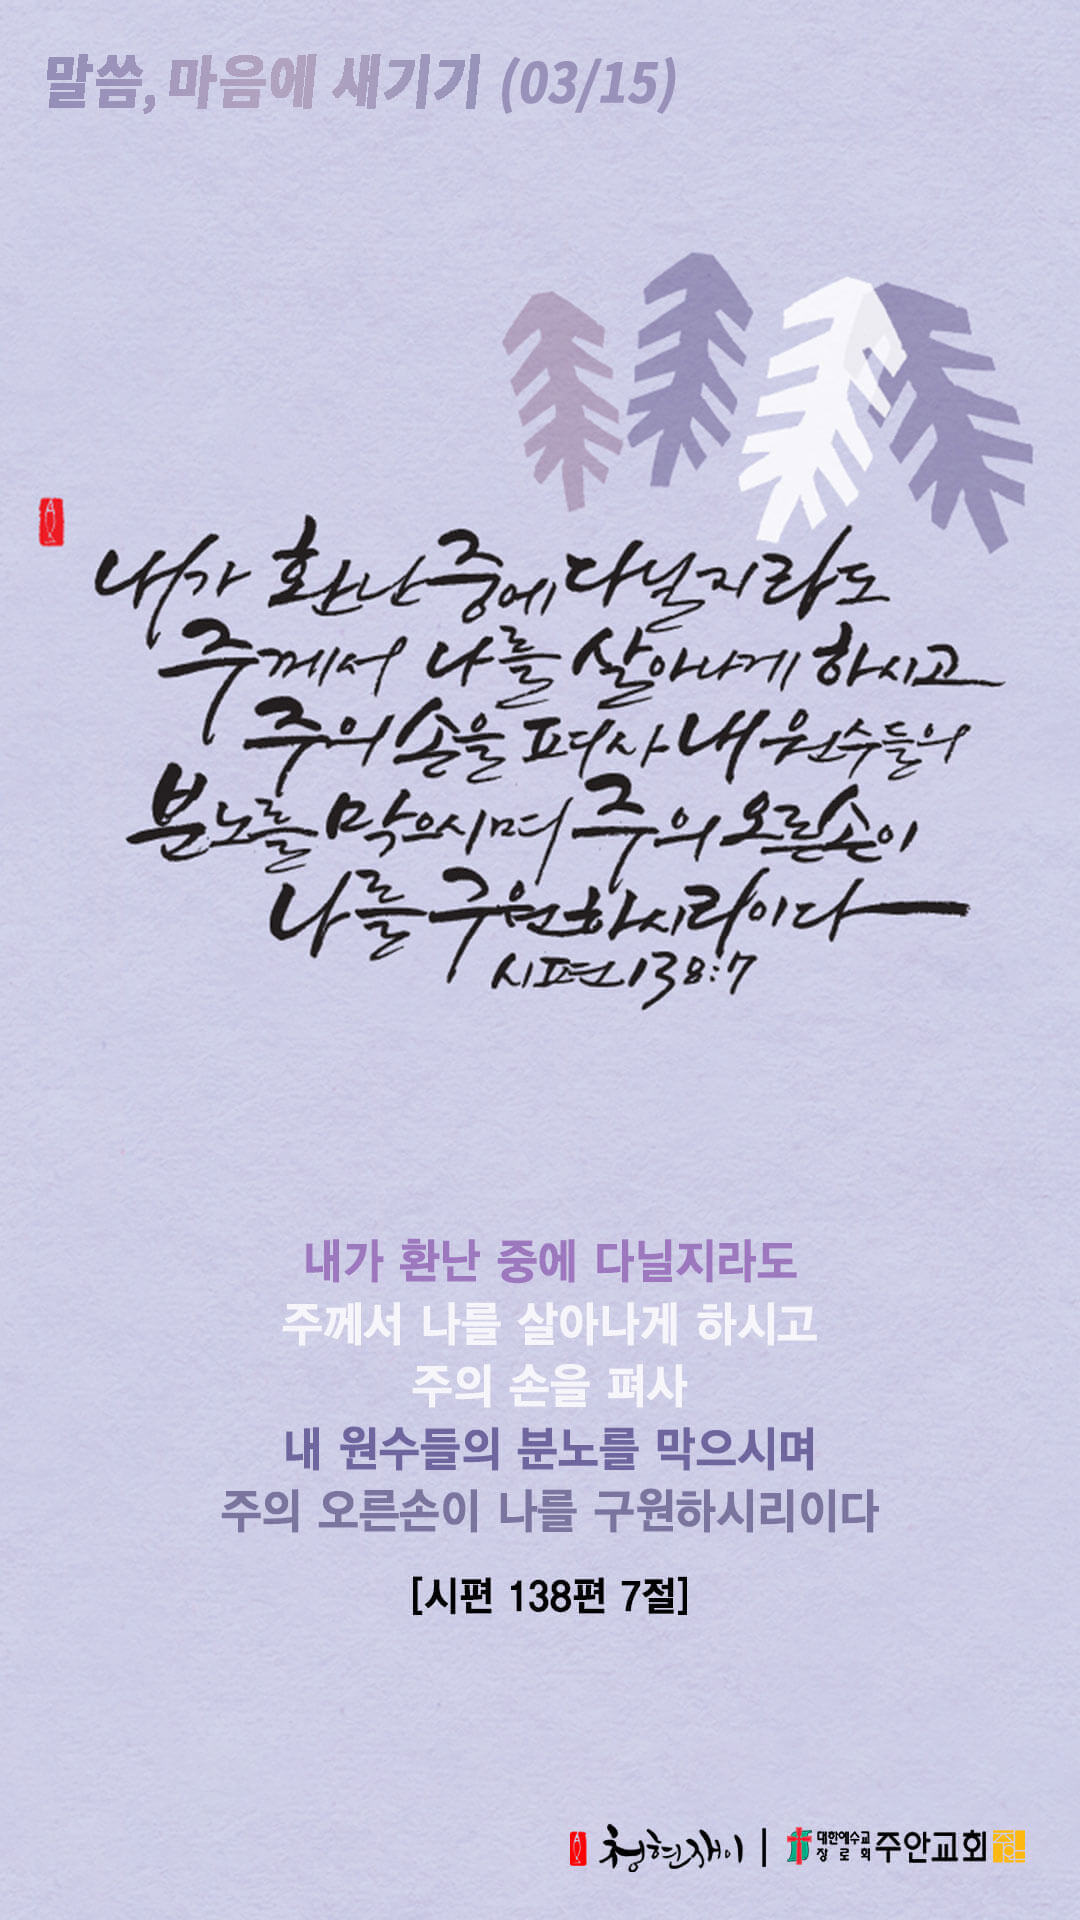 말씀, 마음에 새기기 (03/15)
내가 환난 중에 다닐지라도
주께서 나를 살아나게 하시고
주의 손을 펴사 내 원수들의
분노를 막으시며 주의 오른손이
나를 구원하시리이다
시편 138:7
내가 환난 중에 다닐지라도
주께서 나를 살아나게 하시고
주의 손을 펴사
내 원수들의 분노를 막으시며
주의 오른손이 나를 구원하시리이다
[시편 138편 7절]
청현재이 | 대한예수교장로회 주안교회